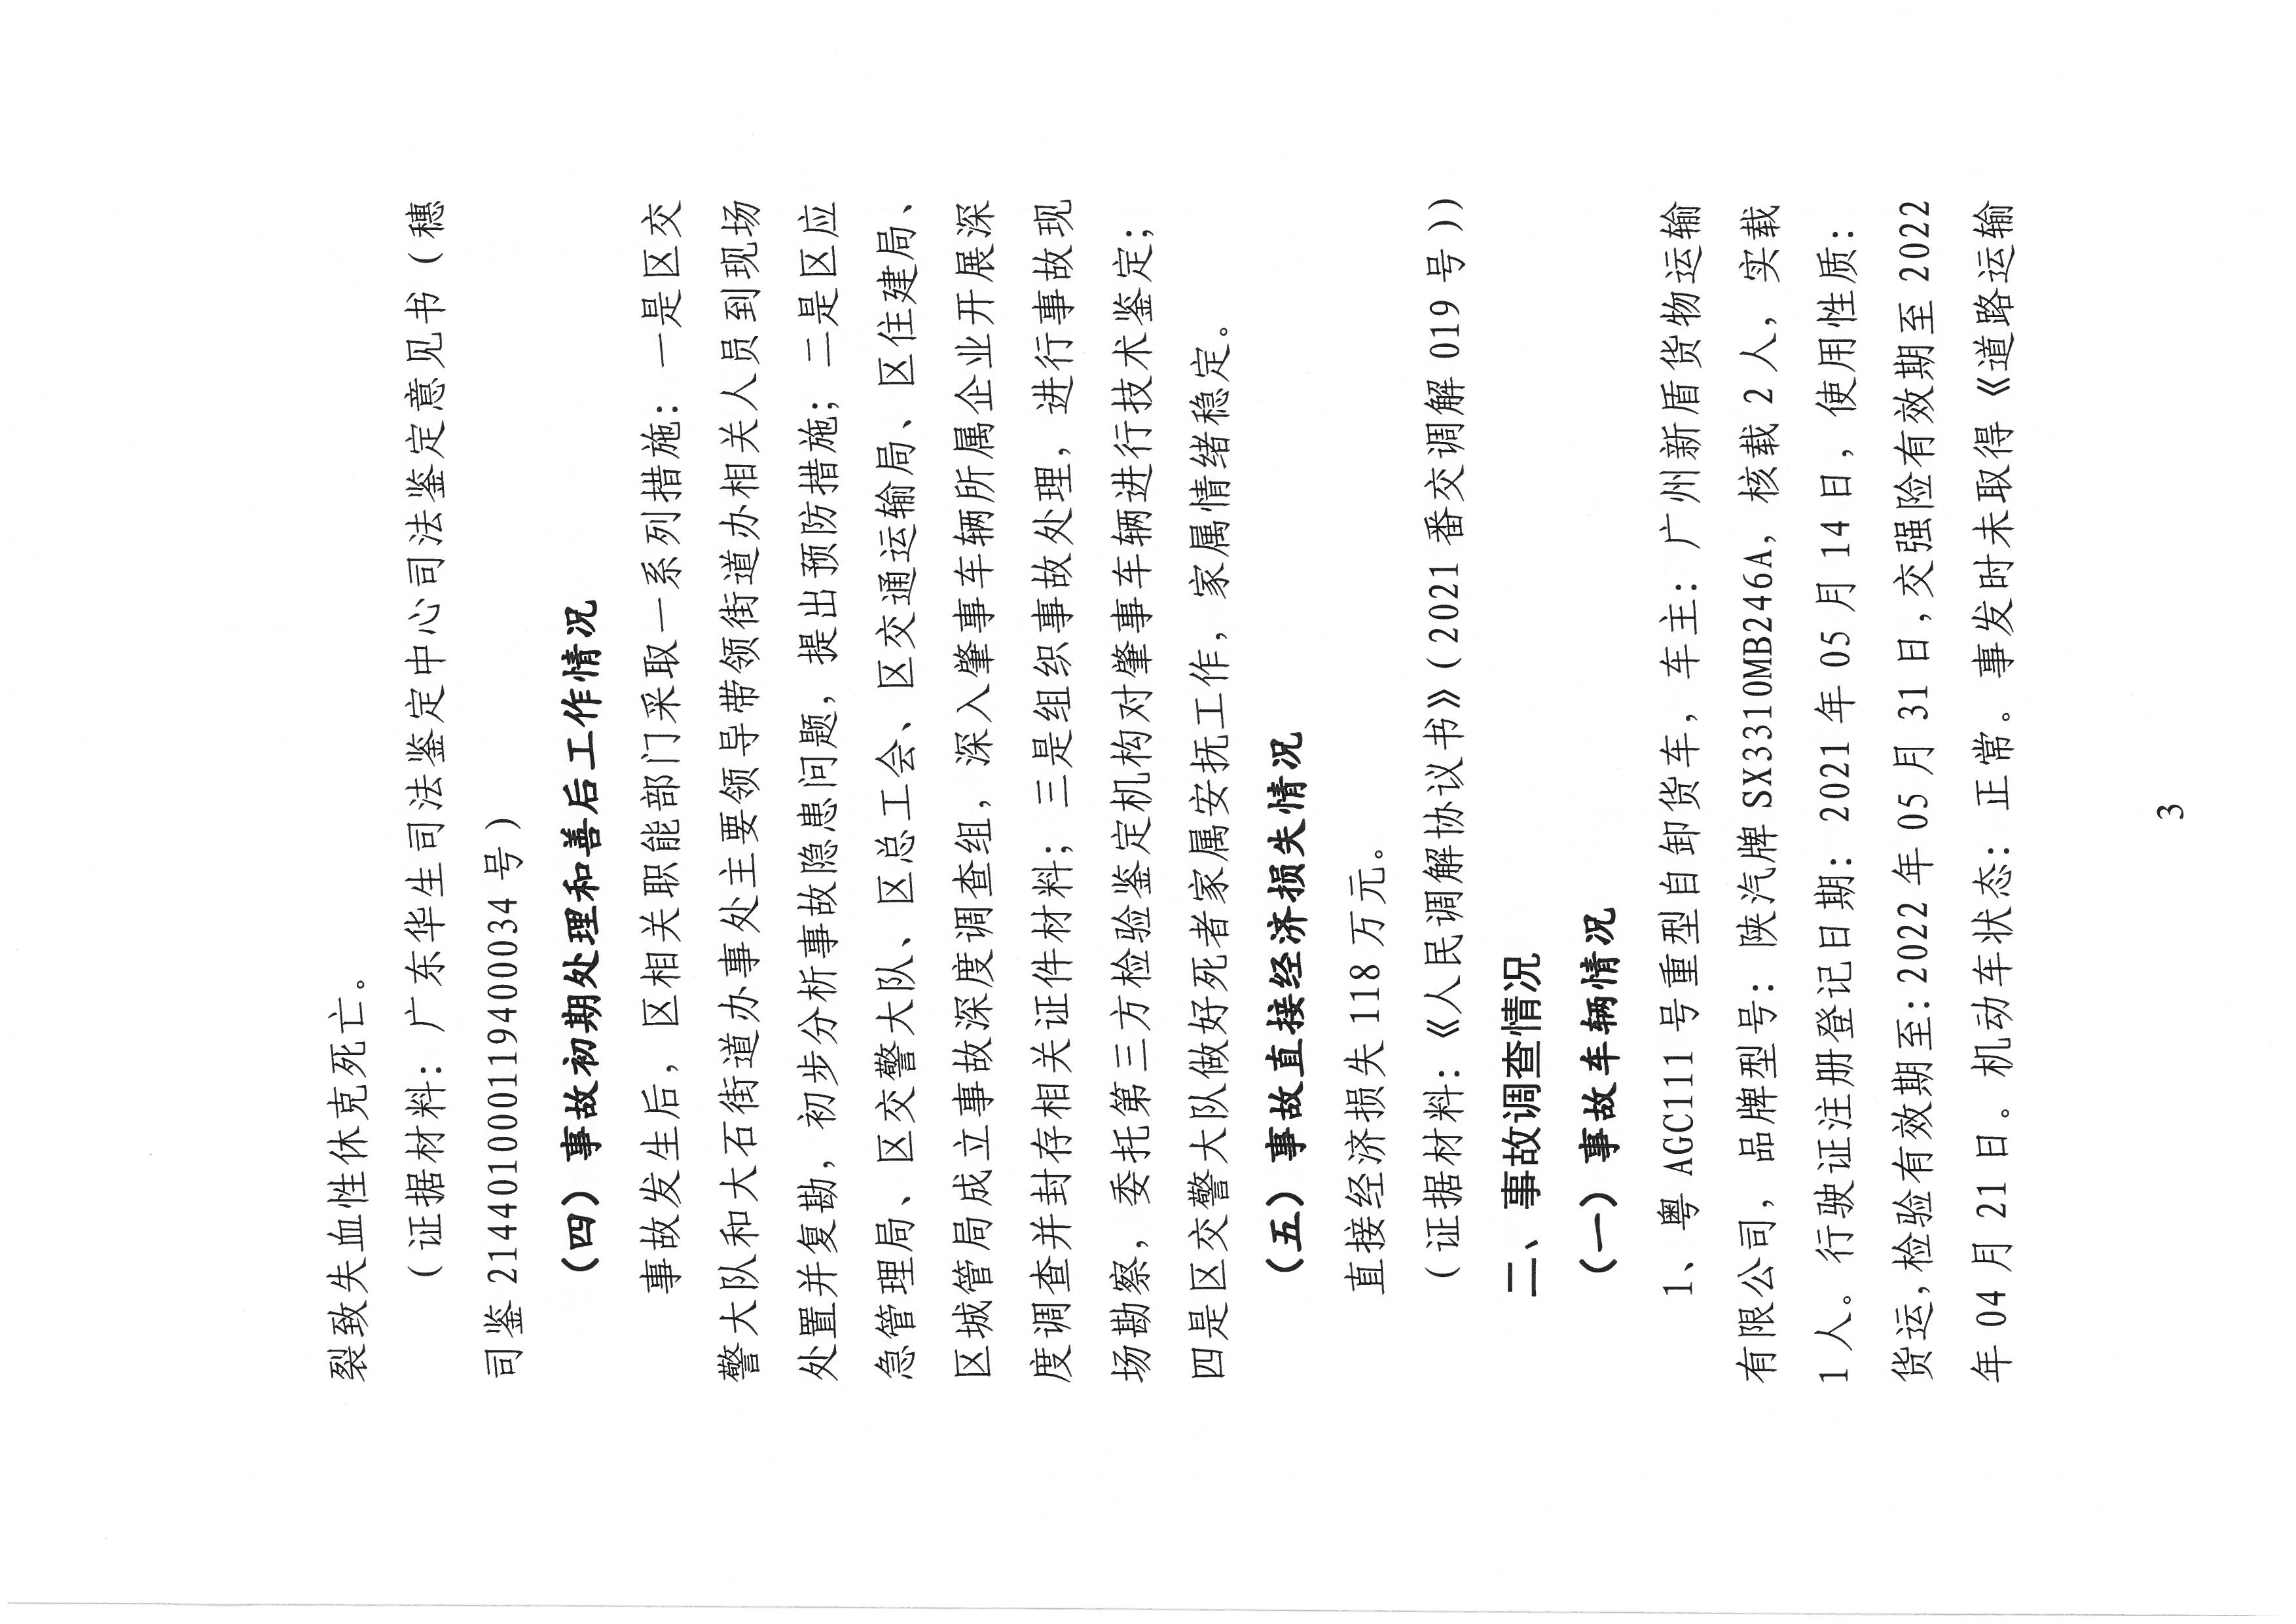 裂致失血性休克死亡。
（证据材料：广东华生司法鉴定中心司法鉴定意见书（穗
司鉴 21440100011940​0034 号）
（四）事故初期处理和善后工作情况
事故发生后，区相关职能部门采取一系列措施：一是区交
警大队和大石街道办事处主要领导带领街道办相关人员到现场
处置并复勘，初步分析事故隐患问题，提出预防措施；二是区应
急管理局、区交警大队、区总工会、区交通运输局、区住建局、
区城管局成立事故深度调查组，深入肇事车辆所属企业开展深
度调查并封存相关证件材料；三是组织事故处理，进行事故现
场勘察，委托第三方检验鉴定机构对肇事车辆进行技术鉴定；
四是区交警大队做好死者家属安抚工作，家属情绪稳定。
（五）事故直接经济损失情况
直接经济损失 118 万元。
（证据材料：《人民调解协议书》（2021 番交调解 019 号））
二、事故调查情况
（一）事故车辆情况
1、粤 AGC111 号重型自卸货车，车主：广州新盾货物运输
有限公司，品牌型号：陕汽牌 SX3310MB246A，核载 2 人，实载
1 人。行驶证注册登记日期：2021 年 05 月 14 日，使用性质：
货运，检验有效期至：2022 年 05 月 31 日，交强险有效期至 2022
年 04 月 21 日。机动车状态：正常。事发时未取得《道路运输
3